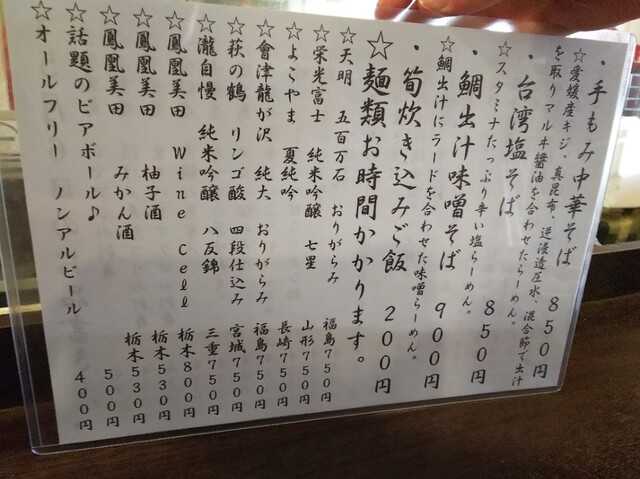 ・手もみ中華そば　８５０円
☆愛媛産キジ、真昆布、逆浸透圧水、混合節で出汁
を取りマルヰ醤油を合わせたらーめん。
・台湾塩そば　８５０円
☆スタミナたっぷり辛い塩らーめん。
・鯛出汁味噌そば　９００円
☆鯛出汁にラードを合わせた味噌らーめん。
・筍炊き込みご飯　２００円
☆麺類お時間かかります。
☆天明　五百万石　おりがらみ　福島７５０円
☆栄光富士　純米吟醸　七星　山形７５０円
☆よこやま　夏純吟　長崎７５０円
☆會津龍が沢　純大　おりがらみ　福島７５０円
☆萩の鶴　リンゴ酸　四段仕込み　宮城７５０円
☆瀧自慢　純米吟醸　八反錦　三重７５０円
☆鳳凰美田　Ｗｉｎｅ　Ｃｅｌｌ　栃木８００円
☆鳳凰美田　柚子酒　栃木５３０円
☆鳳凰美田　みかん酒　栃木５３０円
☆話題のビアボール♪　５００円
☆オールフリー　ノンアルビール　４００円